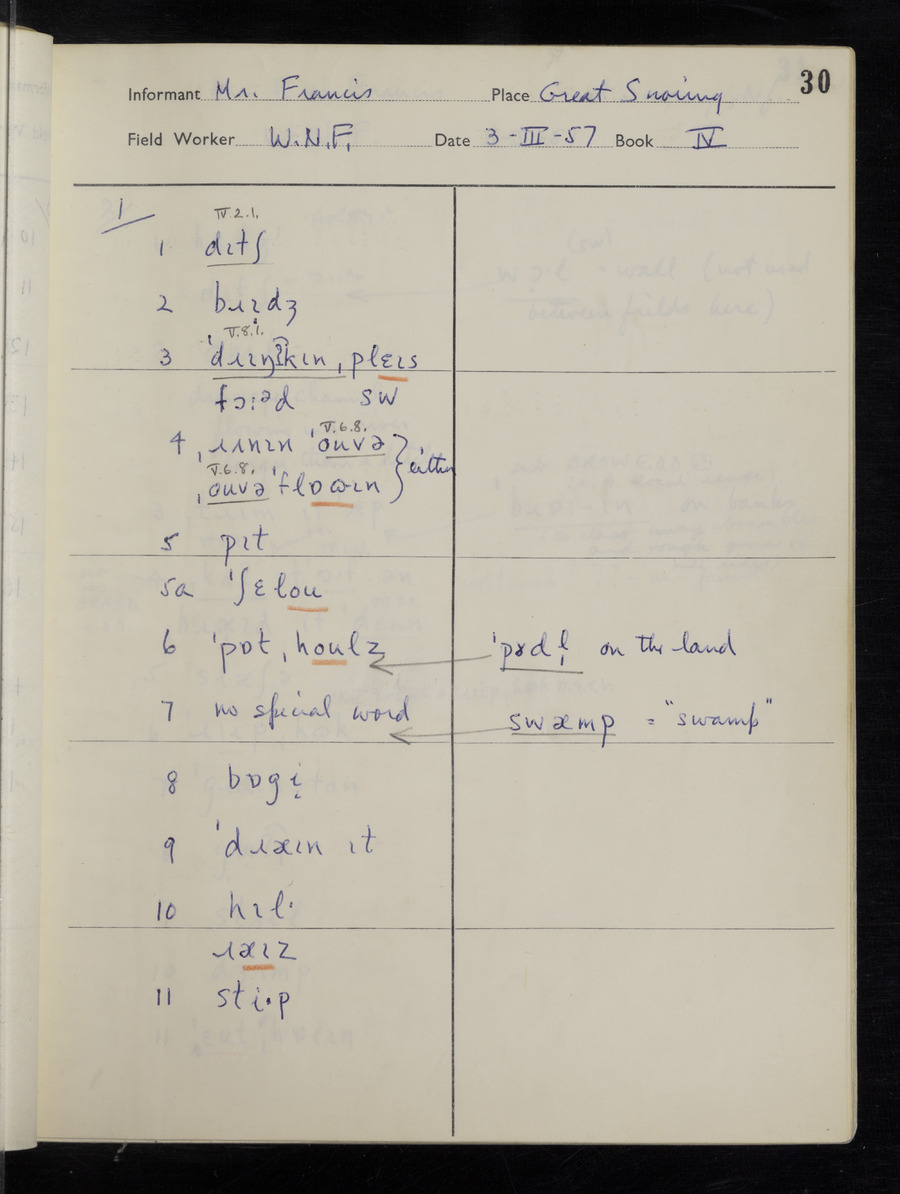 30
Informant Mr. Francis Place Great Snoring
Field Worker W.N.F. Date 3-III-57 Book IV
1
IV.2.1.
1 dɪtʃ
2 bɹɪdʒ
V.8.1.
3 ˈdɹɪŋʔkɪn ˌplɛɪs
fɔːəd SW
V.6.8.
4 ˌɹʌnɪn ˈouvə } either
V.6.8.
ˌouvə ˈflowɪn
5 pɪt
5a ˈʃɛlou
6 ˈpɒt ˌhoulz ˈpɤdl̩ on the land
7 no special word swæmp = "swamp"
8 bɒgi̞
9 ˈdɹæɪn ɪt
10 hɪlˑ
ɹæɪz
11 stiˑp